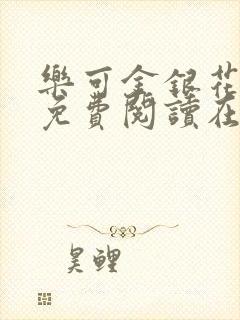 樂可金銀花
免費閱讀在
昊鲤